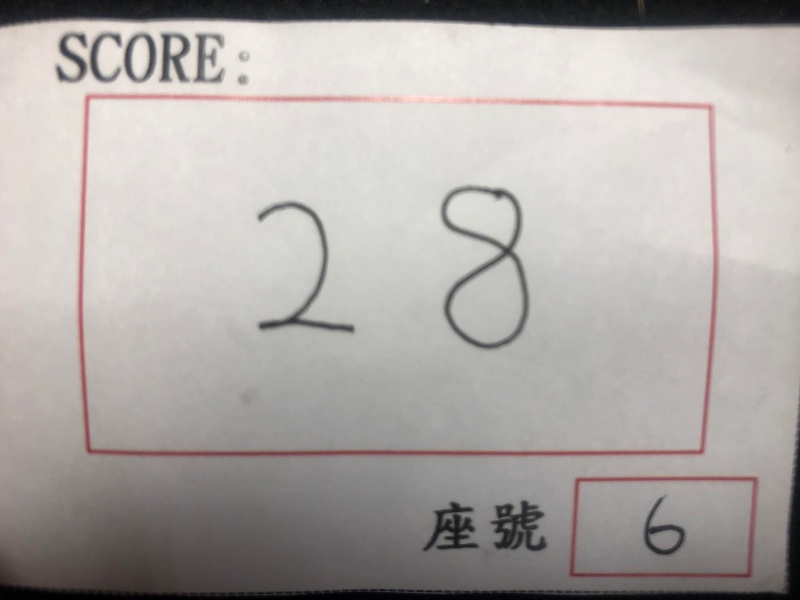 SCORE:
28
座號 6